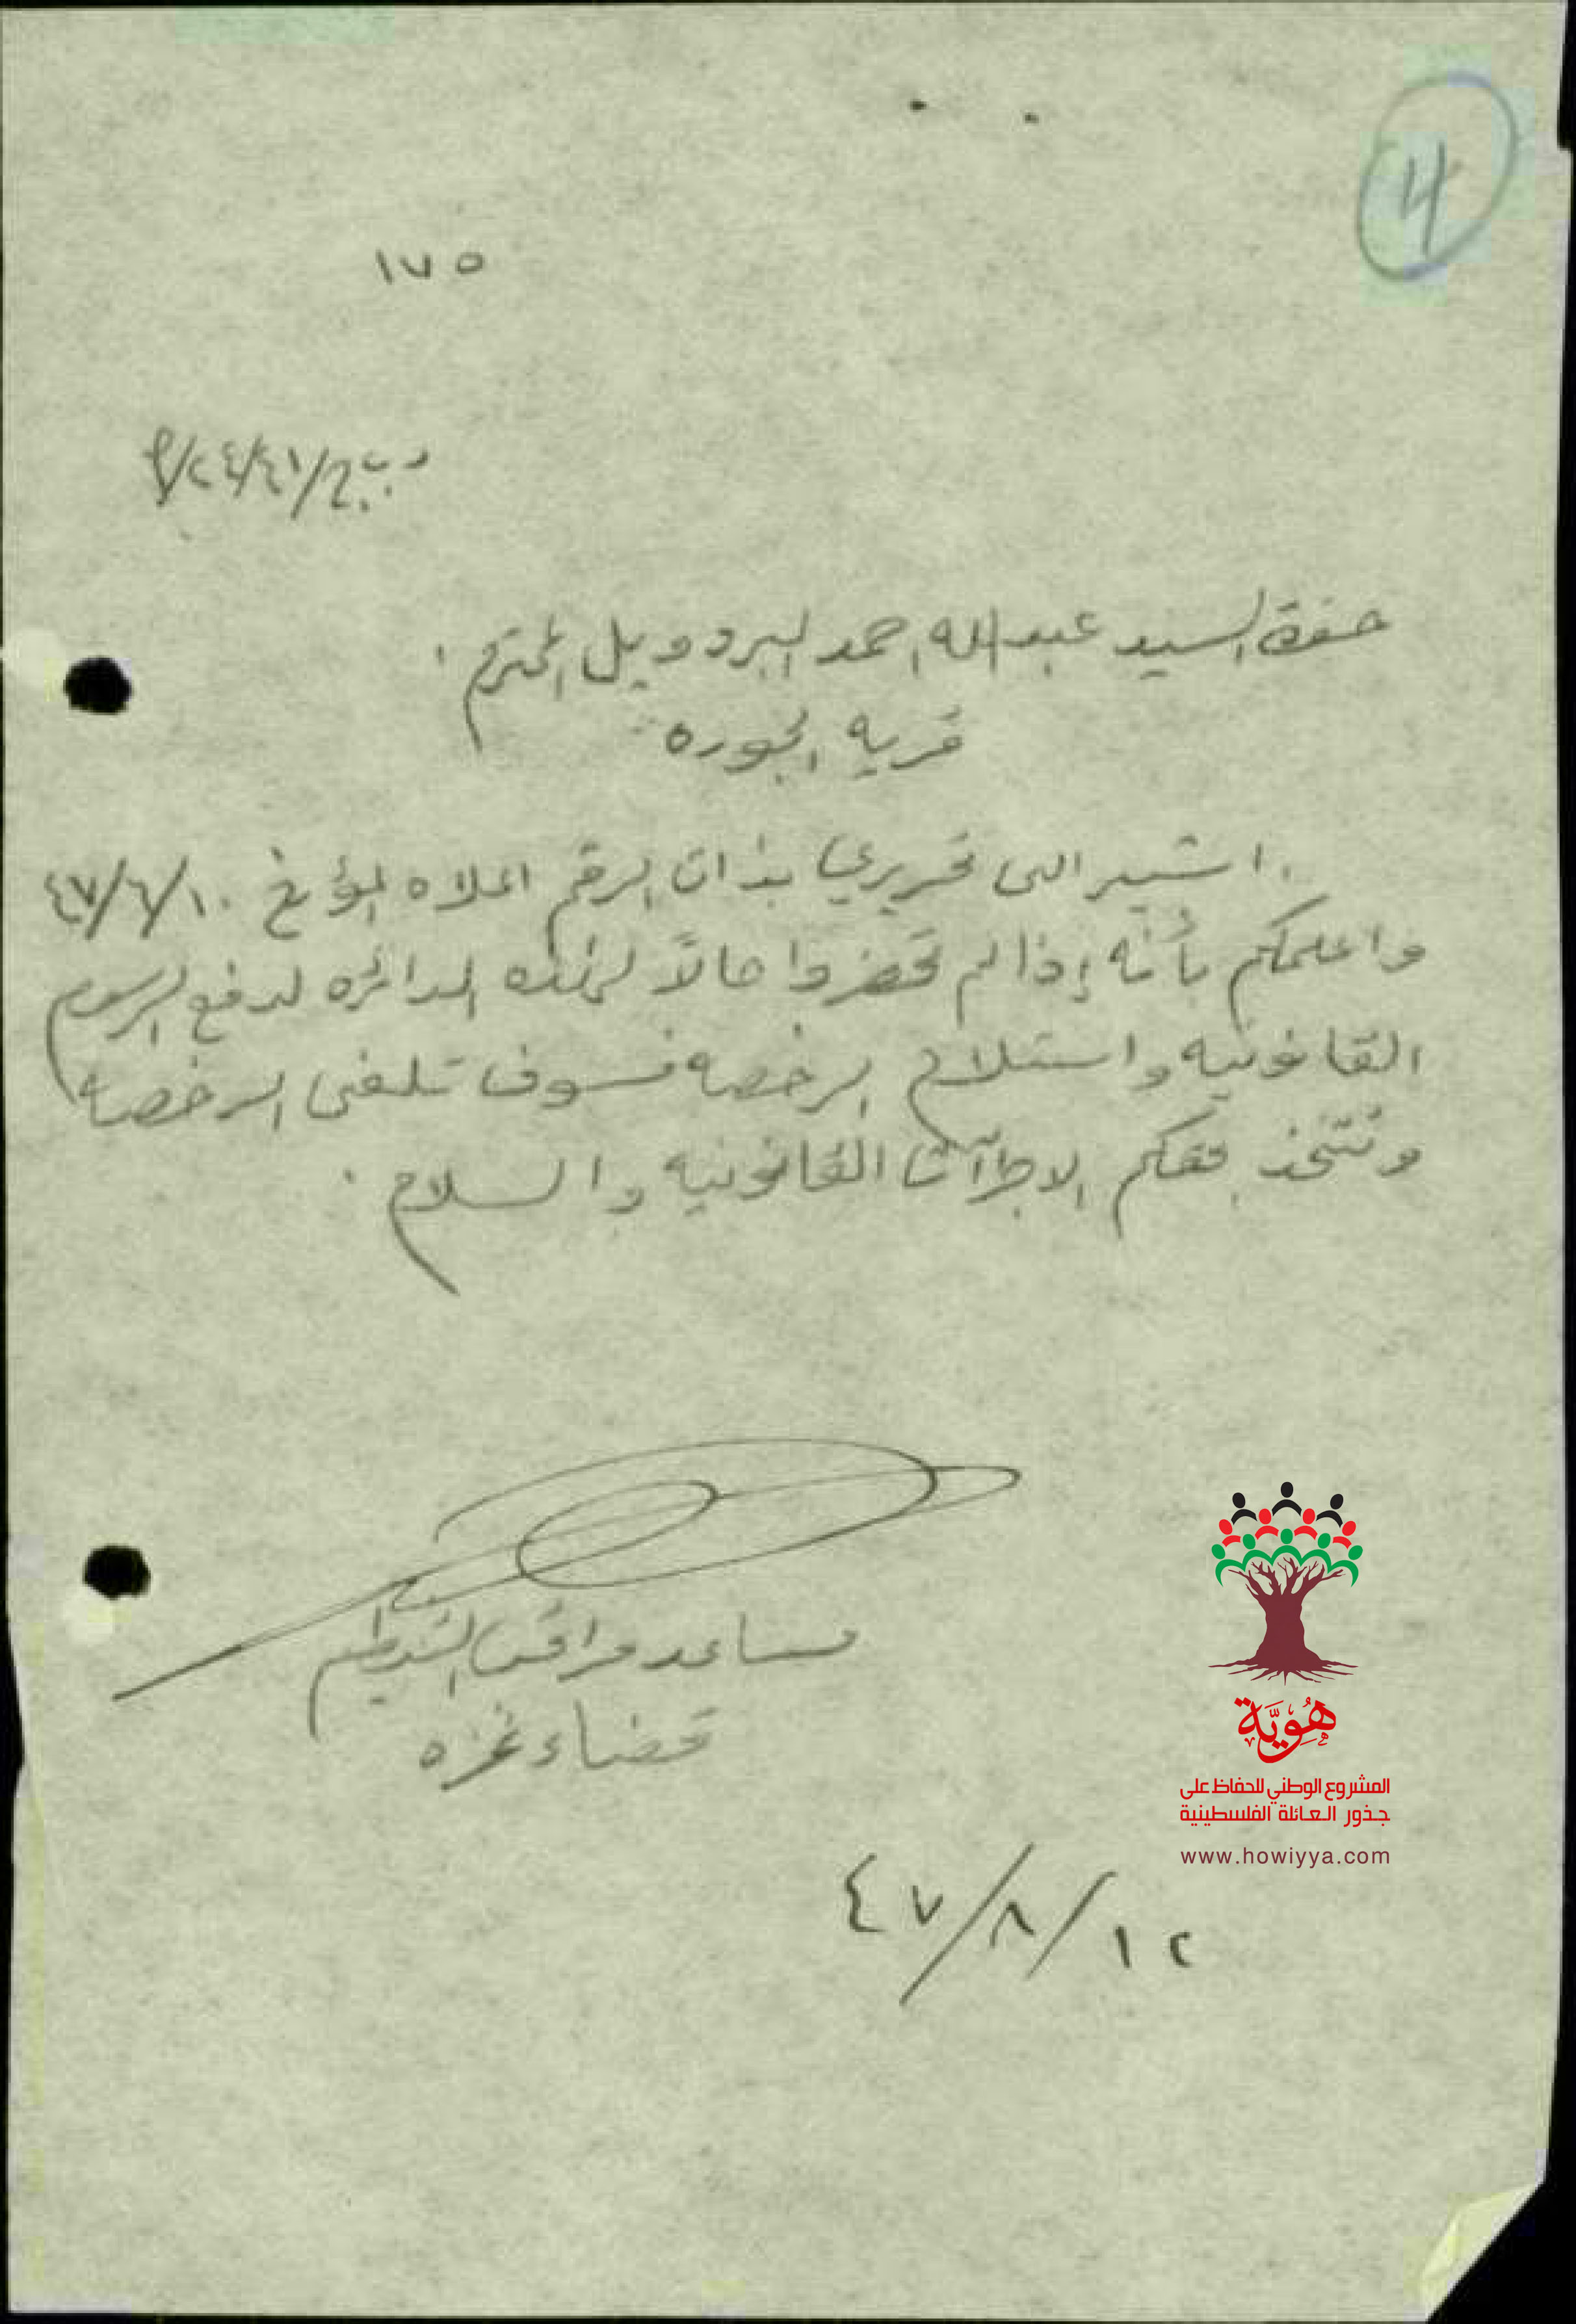 4
١٧٥
ر ب ج/٤١/٢٤/م
حضرة السيد عبد الله احمد البردويل المحترم .
قريه الجوره
اشير الى تحريري بذات الرقم اعلاه المؤرخ ٤٧/٦/١٠
واعلمكم بأنه إذا لم تحضروا حالاً لهذه الدائره لدفع الرسوم
القانونيه واستلام الرخصه فسوف تلغى الرخصه
وتتخذ بحقكم الاجراآت القانونيه والسلام .
مساعد مراقب التنظيم
قضاء غزه
٤٧/٨/١٢
هُوِيَّة
المشروع الوطني للحفاظ على
جذور العائلة الفلسطينية
www.howiyya.com